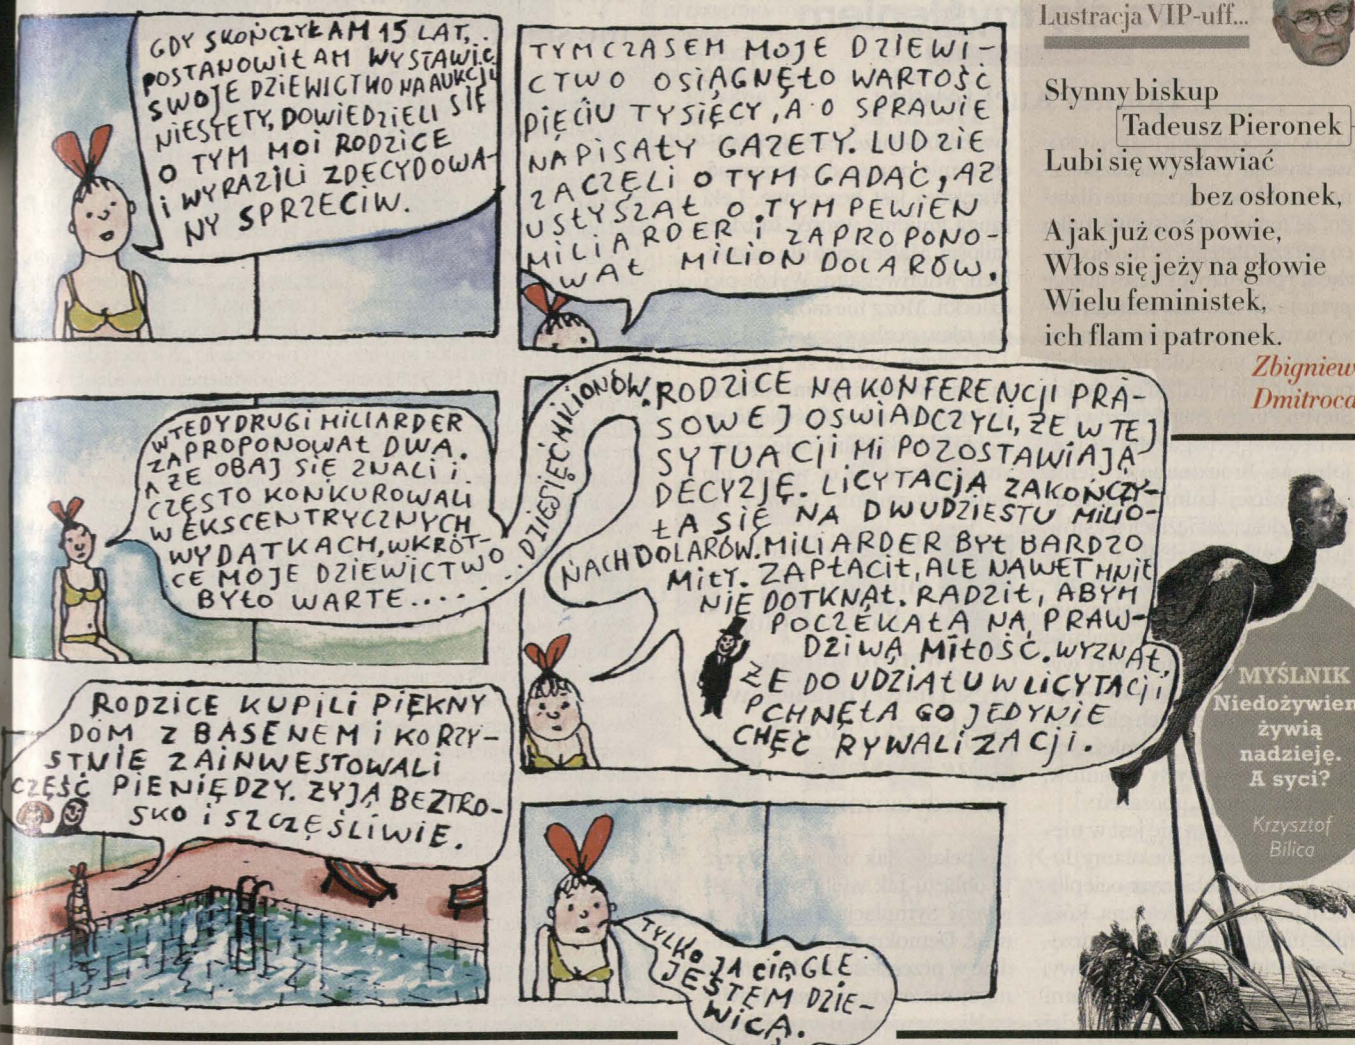 GDY SKOŃCZYŁAM 15 LAT,
POSTANOWIŁAM WYSTAWIĆ
SWOJE DZIEWICTWO NA AUKCJI.
NIESTETY, DOWIEDZIELI SIĘ
O TYM MOI RODZICE
I WYRAZILI ZDECYDOWA-
NY SPRZECIW.
TYMCZASEM MOJE DZIEWI-
CTWO OSIĄGNĘŁO WARTOŚĆ
PIĘCIU TYSIĘCY, A O SPRAWIE
NAPISAŁY GAZETY. LUDZIE
ZACZĘLI O TYM GADAĆ, AŻ
USŁYSZAŁ O TYM PEWIEN
MILIARDER I ZAPROPONO-
WAŁ MILION DOLARÓW.
WTEDY DRUGI MILIARDER
ZAPROPONOWAŁ DWA.
A ŻE OBAJ SIĘ ZNALI I
CZĘSTO KONKUROWALI
W EKSCENTRYCZNYCH
WYDATKACH, WKRÓT-
CE MOJE DZIEWICTWO
BYŁO WARTE.....
..DZIESIĘĆ MILIONÓW.
RODZICE NA KONFERENCJI PRA-
SOWEJ OŚWIADCZYLI, ŻE W TEJ
SYTUACJI MI POZOSTAWIAJĄ
DECYZJĘ. LICYTACJA ZAKOŃCZY-
ŁA SIĘ NA DWUDZIESTU MILIO-
NACH DOLARÓW. MILIARDER BYŁ BARDZO
MIŁY. ZAPŁACIŁ, ALE NAWET MNIE
NIE DOTKNĄŁ. RADZIŁ, ABYM
POCZEKAŁA NA PRAW-
DZIWĄ MIŁOŚĆ. WYZNAŁ,
ŻE DO UDZIAŁU W LICYTACJI
PCHNĘŁA GO JEDYNIE
CHĘĆ RYWALIZACJI.
RODZICE KUPILI PIĘKNY
DOM Z BASENEM I KORZY-
STNIE ZAINWESTOWALI
CZĘŚĆ PIENIĘDZY. ŻYJĄ BEZTRO-
SKO I SZCZĘŚLIWIE.
TYLKO JA CIĄGLE
JESTEM DZIE-
WICĄ.
Lustracja VIP-uff...
Słynny biskup
Tadeusz Pieronek
Lubi się wysławiać
bez osłonek,
A jak już coś powie,
Włos się jeży na głowie
Wielu feministek,
ich flam i patronek.
Zbigniew
Dmitroca
MYŚLNIK
Niedożywien
żywią
nadzieję.
A syci?
Krzysztof
Bilica